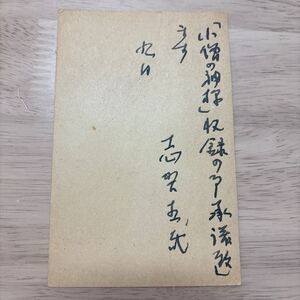 「小僧の神様」収録の事承諾致
ます
九日
志賀直哉